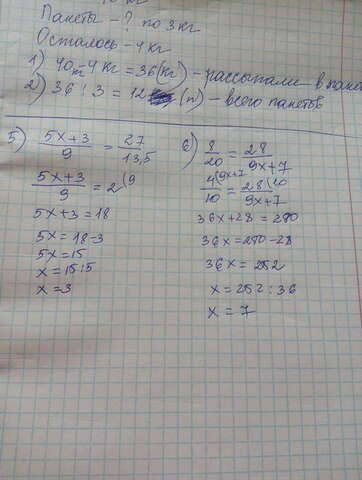 Пакеты - ? по 3 кг
Осталось - 4 кг
1) 40 - 4 кг = 36 (кг) - рассыпали в паке
2) 36 : 3 = 12 (п) - всего пакетов
5) (5x+3)/9 = 27/13,5
(5x+3)/9 = 2 (9
5x+3 = 18
5x = 18-3
5x = 15
x = 15:5
x = 3
6) 8/20 = 28/(9x+7)
4(9x+7/10 = 28(10/(9x+7)
36x+28 = 280
36x = 280-28
36x = 252
x = 252 : 36
x = 7